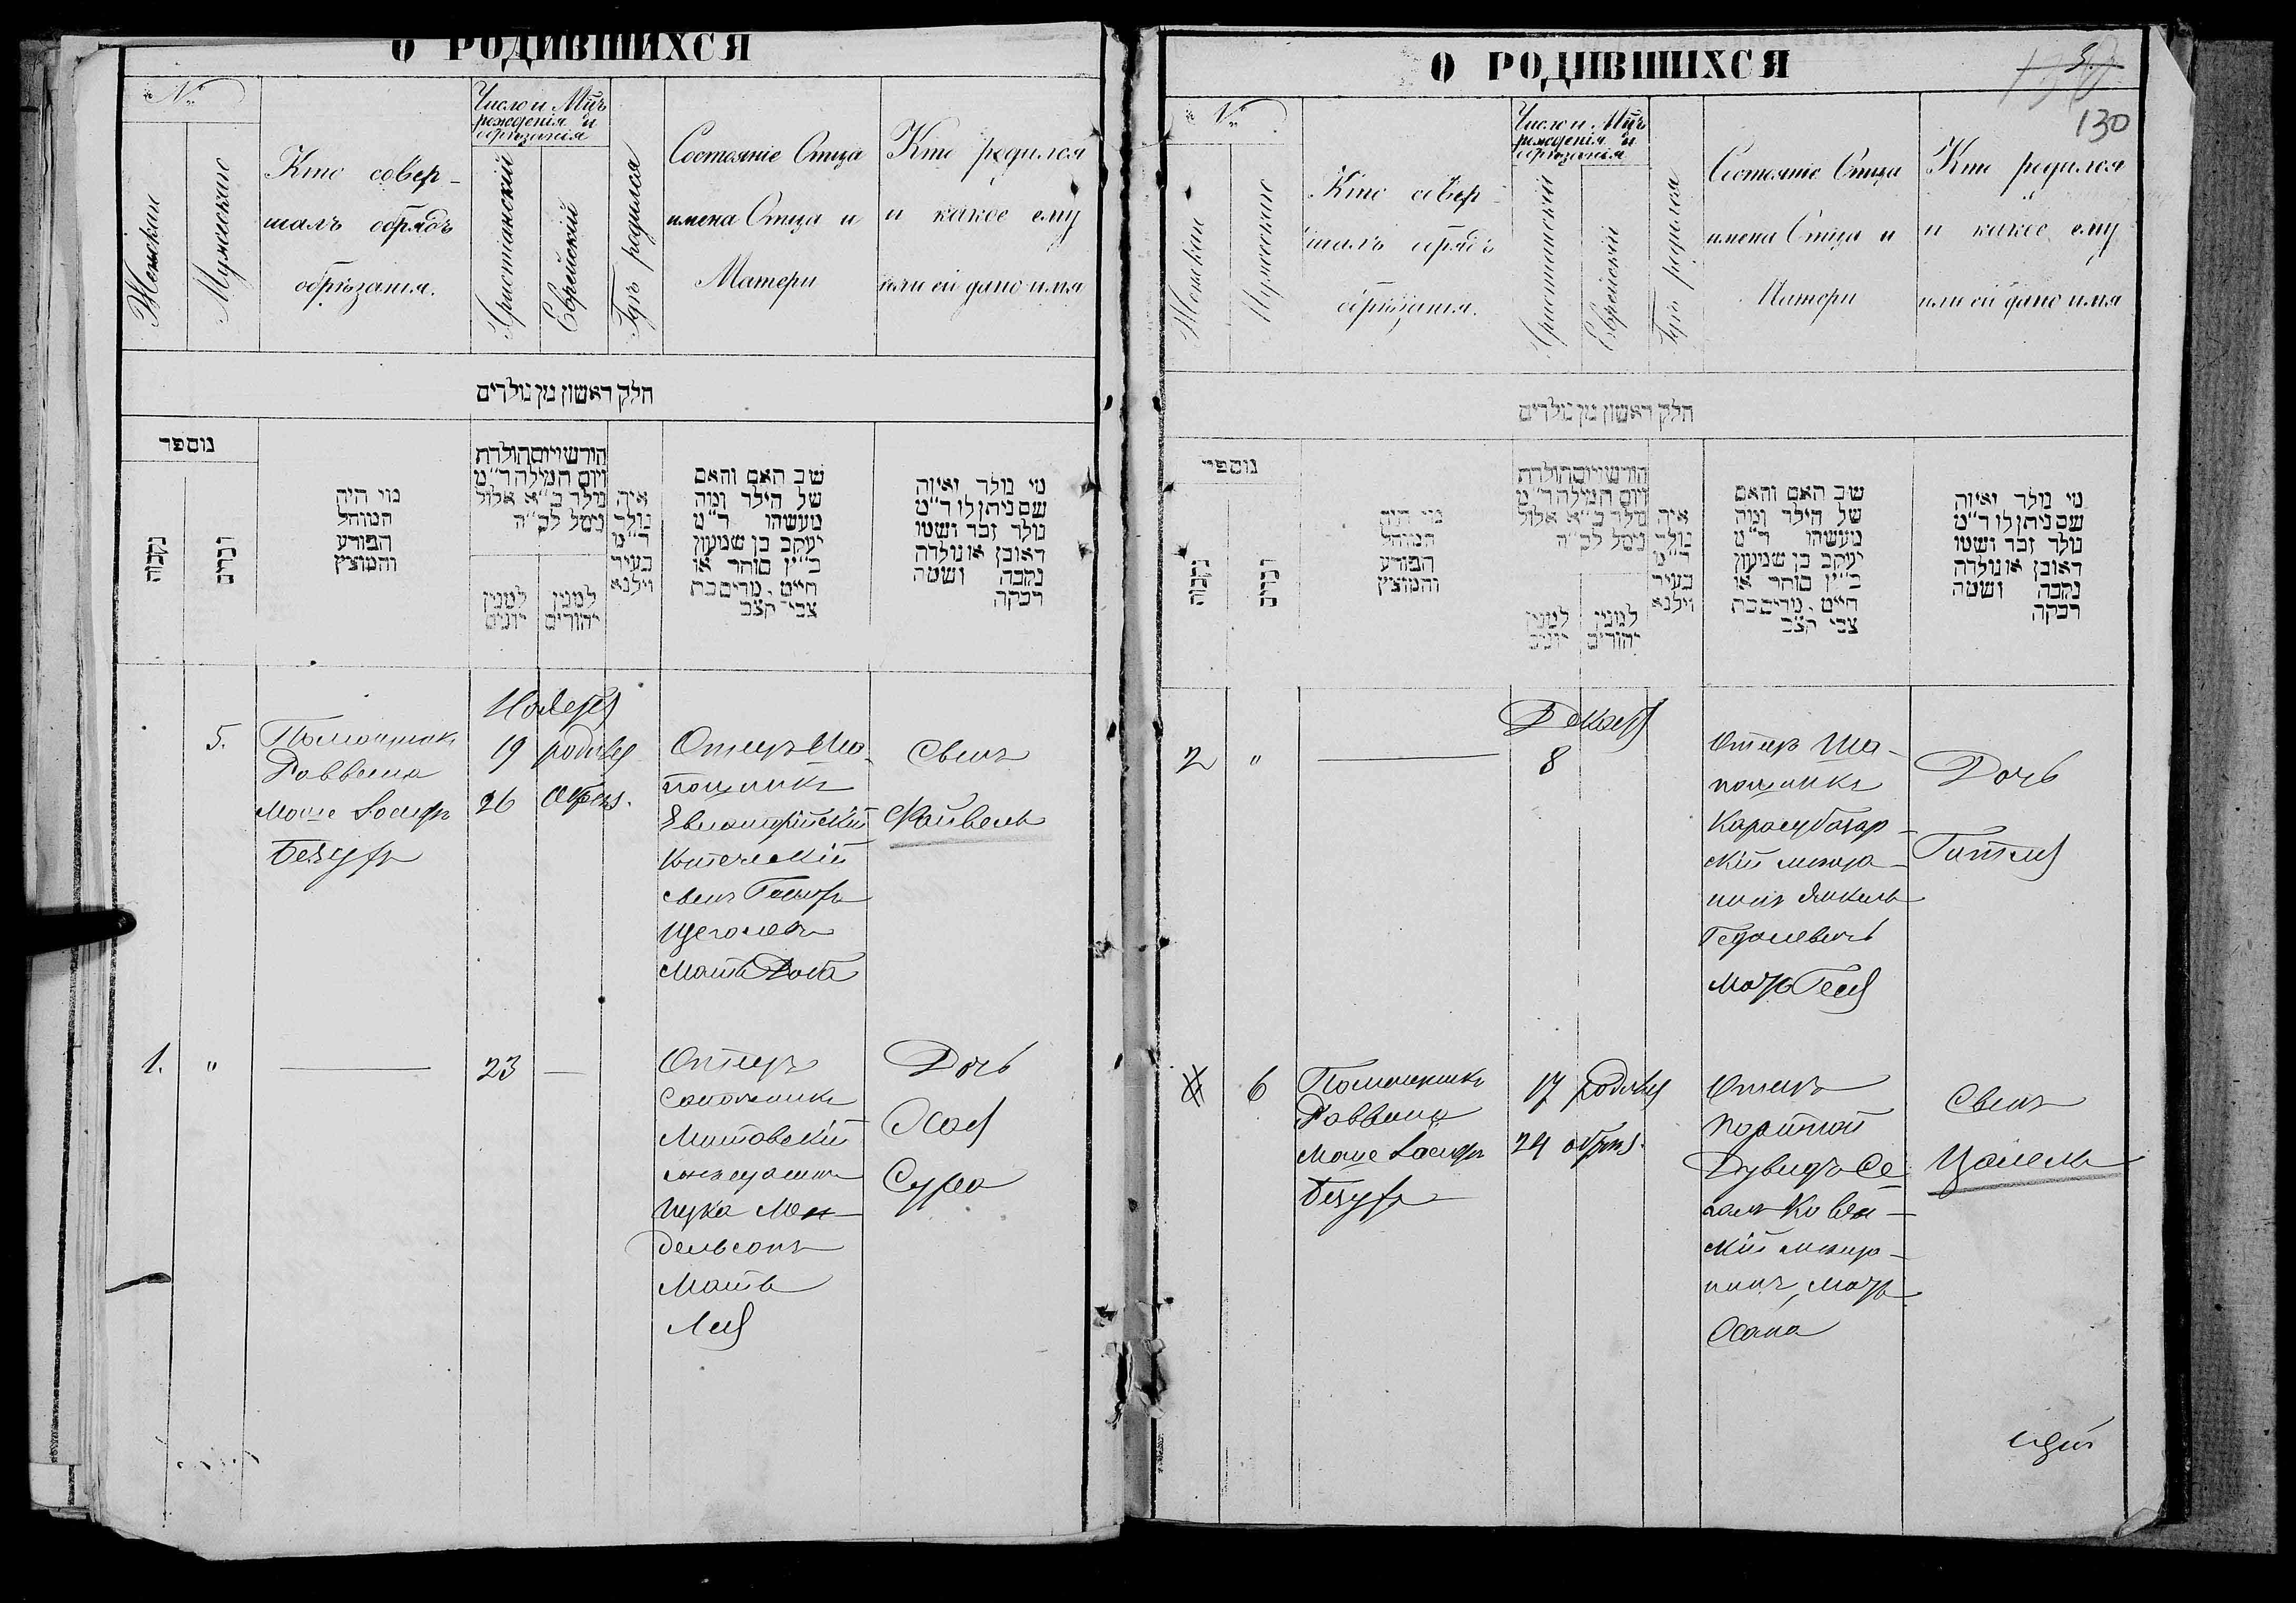 О РОДИВШИХСЯ
№
Женскаго
Мужескаго
Кто совер-
шалъ обрядъ
обрѣзанія.
Число и Мѣц
рожденія и
обрѣзанія
Христіанскій
Еврейскій
Гдѣ родился
Состояніе Отца
имена Отца и
Матери
Кто родился
и какое ему
или ей дано имя
חלק ראשון מן נולדים
מספר
נקבות
זכרים
מי היה
המוהל
הפורע
והמוצץ
חודש ויום הולדת
ויום המילה ד"מ
נולד כ"א אלול
נימל לכ"ה
למנין
יונים
למנין
יהודים
איה
נולד
ד"מ
בעיר
וילנא
שב האם והאם
של הילד ומה
מעשהו ד"מ
יעקב בן שמעון
כ"ץ סוחר או
חייט. מרים בת
צבי קצב
מי נולד ואיזה
שם ניתן לו ד"מ
נולד זכר ושמו
ראובן או נולדה
נקבה ושמה
רבקה
Ноября
5.
Помощник
Раввина
Моше Іосифъ
Безуръ
19 родился
26 обрѣз.
Отецъ Ша-
пошникъ
Евпаторійскій
сынъ
Мать
Сынъ
Файвель
1.
"
23
Отецъ
Мендельсонъ
Мать
Лия
Дочь
Хая
Сура
О РОДИВШИХСЯ
130
№
Женскаго
Мужескаго
Кто совер-
шалъ обрядъ
обрѣзанія.
Число и Мѣц
рожденія и
обрѣзанія
Христіанскій
Еврейскій
Гдѣ родился
Состояніе Отца
имена Отца и
Матери
Кто родился
и какое ему
или ей дано имя
חלק ראשון מן נולדים
מספר
נקבות
זכרים
מי היה
המוהל
הפורע
והמוצץ
חודש ויום הולדת
ויום המילה ד"מ
נולד כ"א אלול
נימל לכ"ה
למנין
יונים
למנין
יהודים
איה
נולד
ד"מ
בעיר
וילנא
שב האם והאם
של הילד ומה
מעשהו ד"מ
יעקב בן שמעון
כ"ץ סוחר או
חייט. מרים בת
צבי קצב
מי נולד ואיזה
שם ניתן לו ד"מ
נולד זכר ושמו
ראובן או נולדה
נקבה ושמה
רבקה
Декабря
2
"
8
Отецъ Ша-
пошникъ
Карасубазар-
скій мѣща-
нинъ Янкель
Мать Геня
Дочь
Гитля
6
Помощникъ
Раввина
Моше Іосифъ
Безуръ
17 родился
24 обрѣз.
Отецъ
портной
Дувидъ Се-
галъ Ковен-
скій мѣща-
нинъ, Мать
Хана
Сынъ